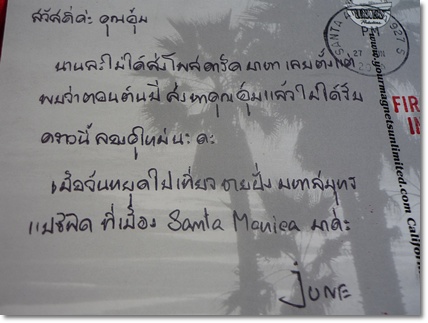 สวัสดีค่ะ คุณอุ้ม
นานละไม่ได้ส่งโพสการ์ด มาตา เลยตั้งแต่
พบว่าตอนต้นปี ส่งหาคุณอุ้มแล้วไม่ได้รับ
คราวนี้ลองดูใหม่นะคะ
เมื่อวันหยุดไปเที่ยว ชายฝั่ง มหาสมุทร
แปซิฟิค ที่เมือง Santa Monica มาค่ะ
JUNE
SANTA A
927 S
PM
27
www.yourmagnetsunlimited.com Californ
FIR